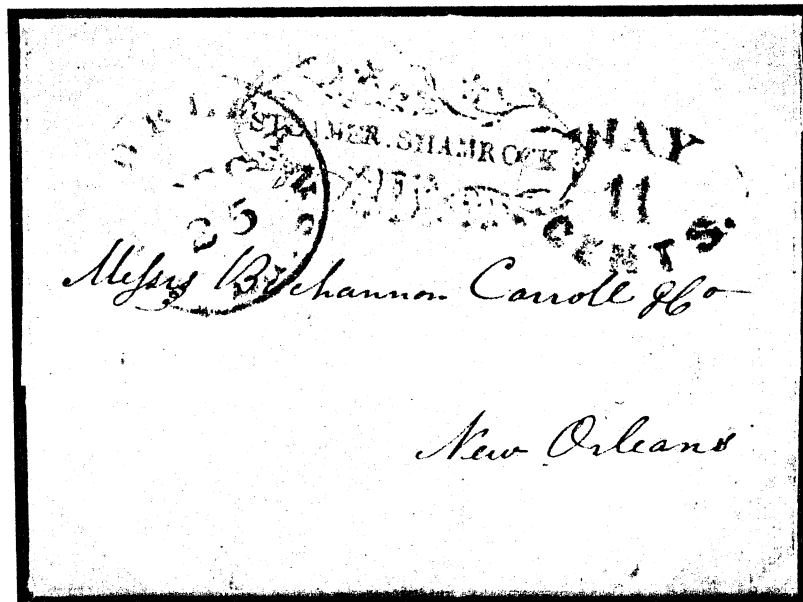 STEAMER.SHAMROCK
WAY
11
CENTS.
25
Messrs Buchannon Carroll & Co
New Orleans